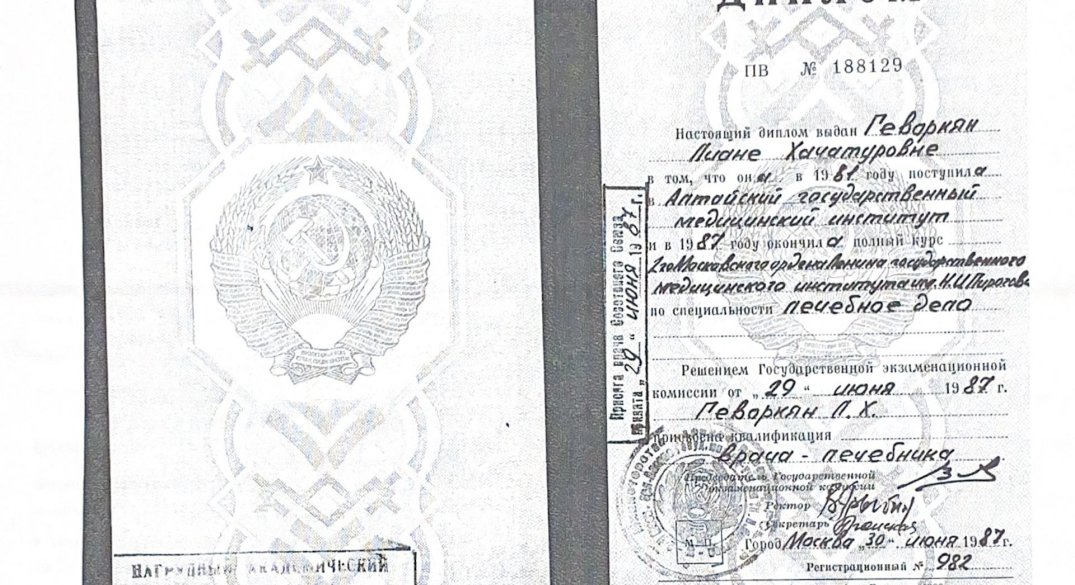 ДИПЛОМ
ПВ № 188129
Настоящий диплом выдан Геворкян
Лиане Хачатуровне
в том, что она в 1981 году поступила
в Алтайский государственный
медицинский институт
и в 1987 году окончила полный курс
2го Московского ордена Ленина государственного
медицинского института им. Н.И. Пирогова
по специальности лечебное дело
Решением Государственной экзаменационной
комиссии от „29“ июня 1987 г.
Геворкян Л.Х.
присвоена квалификация
врача-лечебника
Председатель Государственной
экзаменационной комиссии
Ректор
Секретарь
Город Москва „30“ июня 1987 г.
Регистрационный № 982
Присяга врача Советского Союза
принята „29“ июня 1987 г.
НАГРУДНЫЙ АКАДЕМИЧЕСКИЙ